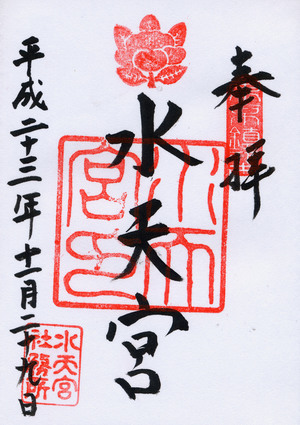 奉拝
水天宮
平成二十三年十一月二十九日
水天宮
社務所